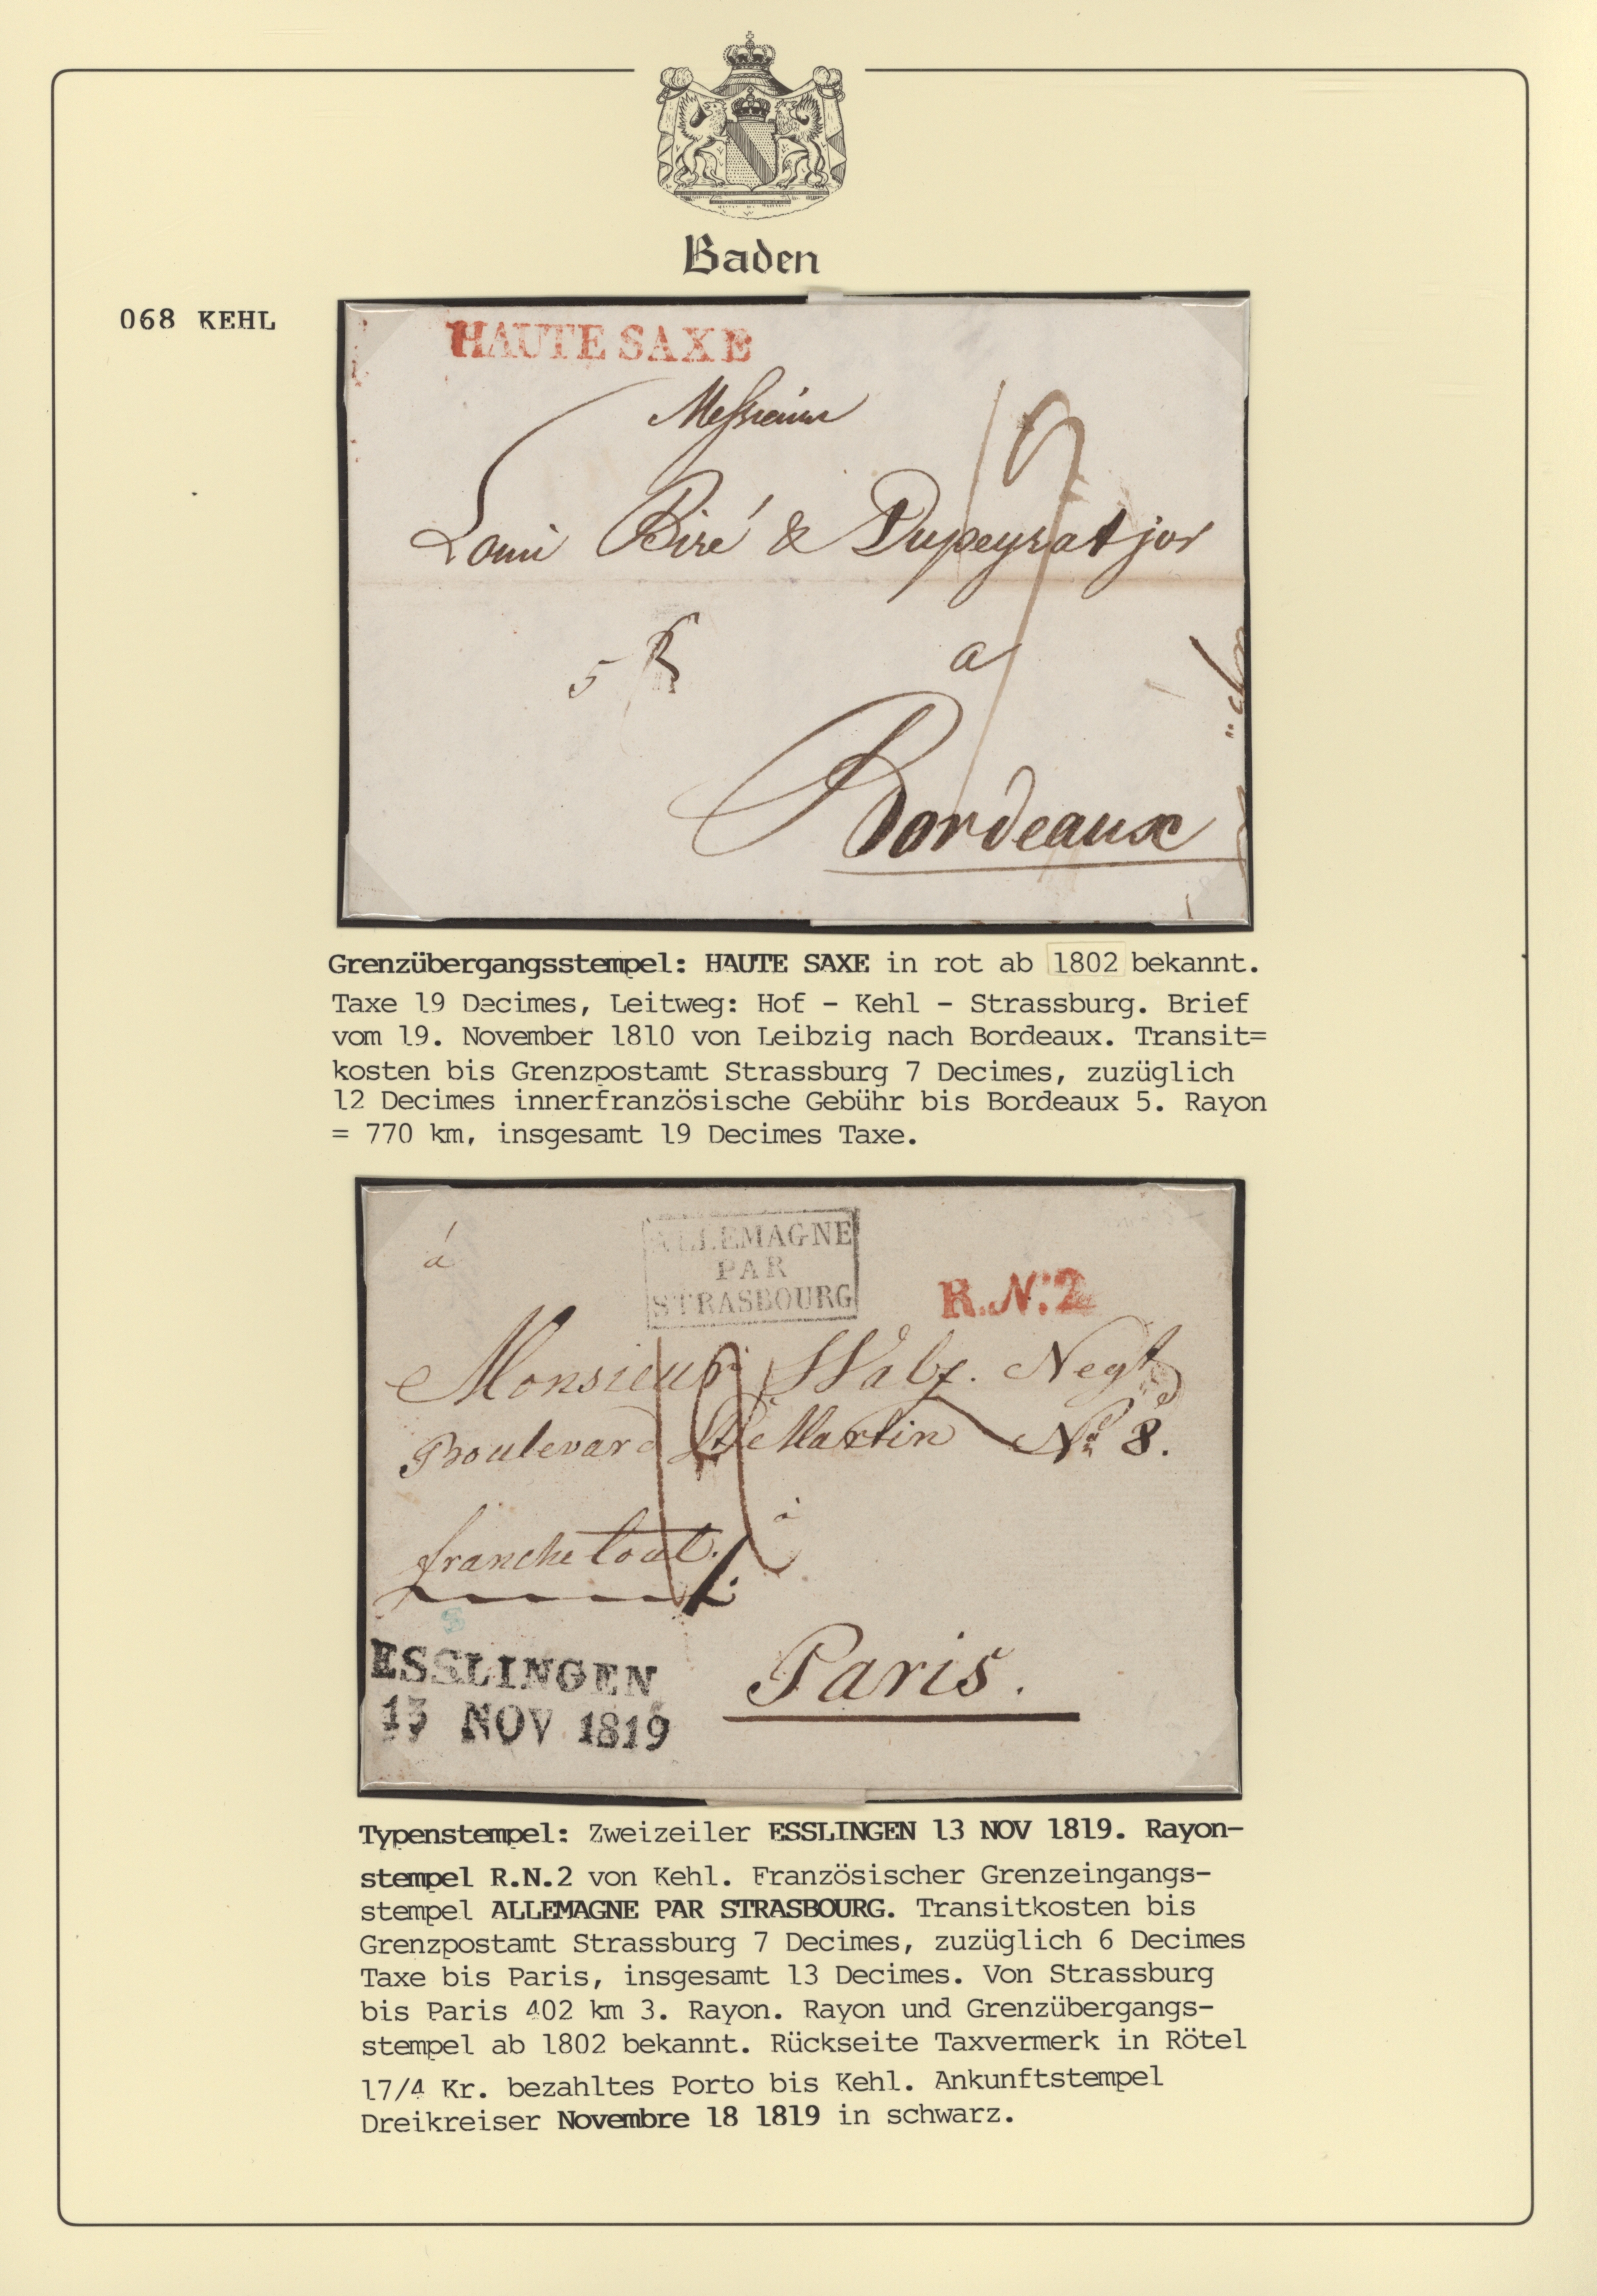 Baden
068 KEHL
HAUTE SAXE
Messieurs
Louis Biré & Dupeyrat jor
5 R
a
Bordeaux
Grenzübergangsstempel: HAUTE SAXE in rot ab 1802 bekannt.
Taxe 19 Decimes, Leitweg: Hof - Kehl - Strassburg. Brief
vom 19. November 1810 von Leibzig nach Bordeaux. Transit=
kosten bis Grenzpostamt Strassburg 7 Decimes, zuzüglich
12 Decimes innerfranzösische Gebühr bis Bordeaux 5. Rayon
= 770 km, insgesamt 19 Decimes Taxe.
ALLEMAGNE
PAR
STRASBOURG
á
R.N.:2
Monsieur Walz. Negt
Boulevard St Martin No 8.
franche tout.
à
ESSLINGEN
13 NOV 1819
Paris.
Typenstempel: Zweizeiler ESSLINGEN 13 NOV 1819. Rayon-
stempel R.N.2 von Kehl. Französischer Grenzeingangs-
stempel ALLEMAGNE PAR STRASBOURG. Transitkosten bis
Grenzpostamt Strassburg 7 Decimes, zuzüglich 6 Decimes
Taxe bis Paris, insgesamt 13 Decimes. Von Strassburg
bis Paris 402 km 3. Rayon. Rayon und Grenzübergangs-
stempel ab 1802 bekannt. Rückseite Taxvermerk in Rötel
17/4 Kr. bezahltes Porto bis Kehl. Ankunftstempel
Dreikreiser Novembre 18 1819 in schwarz.